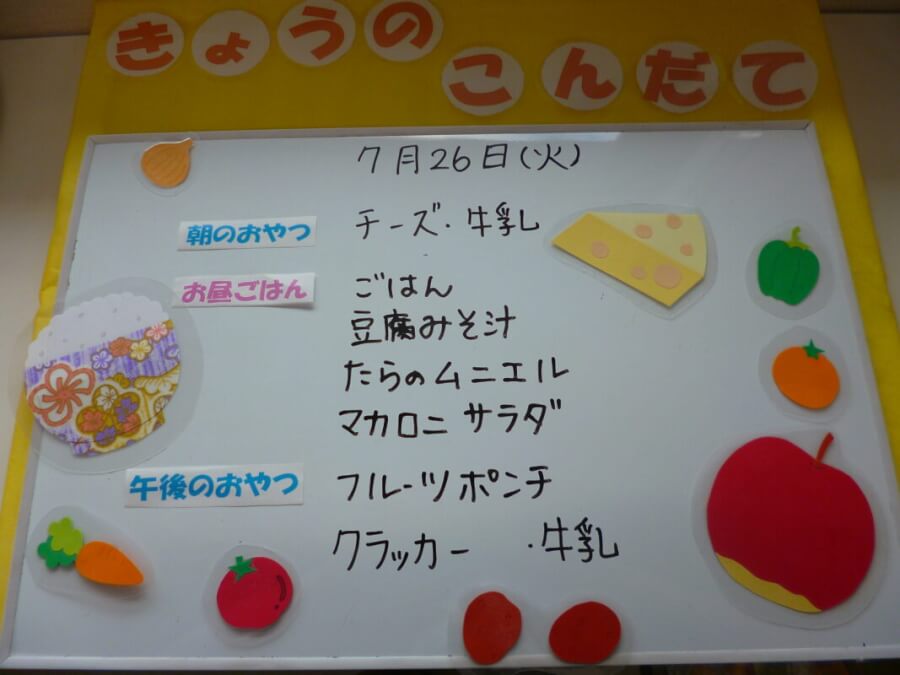 きょうの
こんだて
7月26日(火)
朝のおやつ チーズ・牛乳
お昼ごはん ごはん
豆腐みそ汁
たらのムニエル
マカロニサラダ
午後のおやつ フルーツポンチ
クラッカー ・牛乳